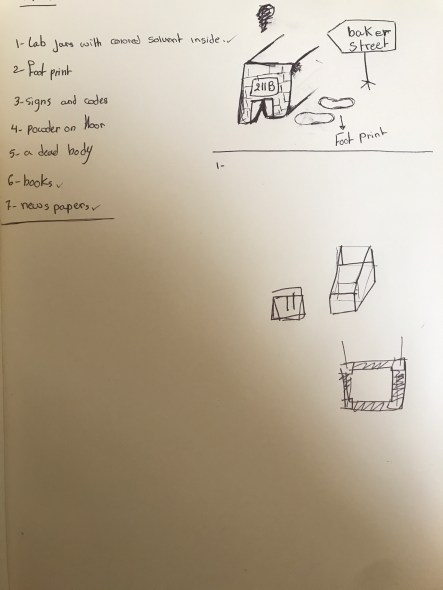 1- Lab Jars with colored solvent inside. ✓
2- Foot print
3- Signs and codes
4- powder on floor
5- a dead body
6- books ✓
7- news papers ✓
baker
street
211B
Foot print
1-